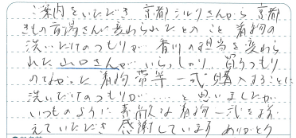 案内をいただき 京都シルクさんから京都
きもの市場さんに変わられたとのこと 着物の
洗いだけのつもりが 香川の担当を変わら
れた山口さんが いらっしゃり 買うつもり
のなかった 着物 帯等 一式 購入することに
洗いだけのつもりが ‥‥ と思いましたが
いつものように 素敵な着物一式を揃
えていただき 感謝しています ありがとう